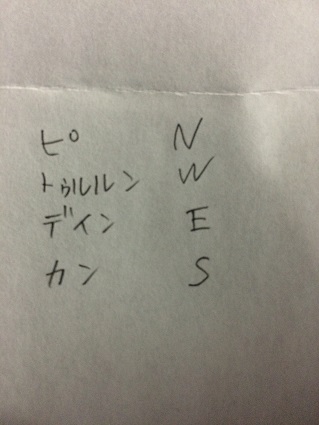 ピ N
トゥルルン W
デイン E
カン S